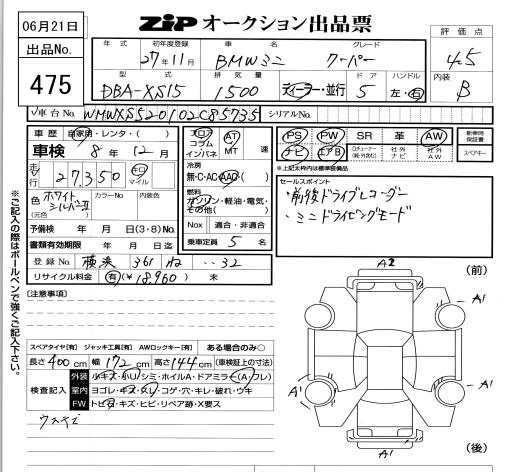 06月21日
出品No.
475
ZIP オークション出品票
年式 初年度登録 車名 グレード
27年11月 BMWミニ クーパー
型式 排気量 ドア ハンドル
DBA-XS15 1500 ディーラー・並行 5 左・右
評価点
4.5
内装
B
車台No. WMWXS520102C85735 シリアルNo.
車歴 自家用・レンタ・( )
車検 8年12月
走行 27,350 キロ マイル
色 ホワイトシルバーII
(元色)
カラーNo 内装色
予備検 年 月 日(3・8)No.
書類有効期限 年 月 日迄
登録No. 横浜 361 ね ‥32
リサイクル料金 有 (¥18,960) 未
フロア
コラム
インパネ
AT
MT 速
冷房
無・C・AC・AAC
燃料
ガソリン・軽油・電気・
その他( )
Nox 適合・非適合
乗車定員 5名
PS PW SR 革 AW
ナビ エアB 社外ナビ 社外AW
新車時保証書
スペアキー
※上記太枠内は標準装備品
セールスポイント
・前後ドライブレコーダー
・ミニドライビングモード
[注意事項]
スペアタイヤ[有] ジャッキ工具[有] AWロックキー[有] ある場合のみ○
長さ400cm 幅172cm 高さ144cm (車検証上の寸法)
検査記入
外装 小キズ・小U・シミ・ホイルA・ドアミラー(A・フレ)
室内 ヨゴレ・キズ・スレ・コゲ・穴・キレ・破れ・ウキ
FW トビ石・キズ・ヒビ・リペア跡・X要ス
※ご記入の際はボールペンで強くご記入下さい。
A2
(前)
A1
A1
A1
A1
A1
(後)